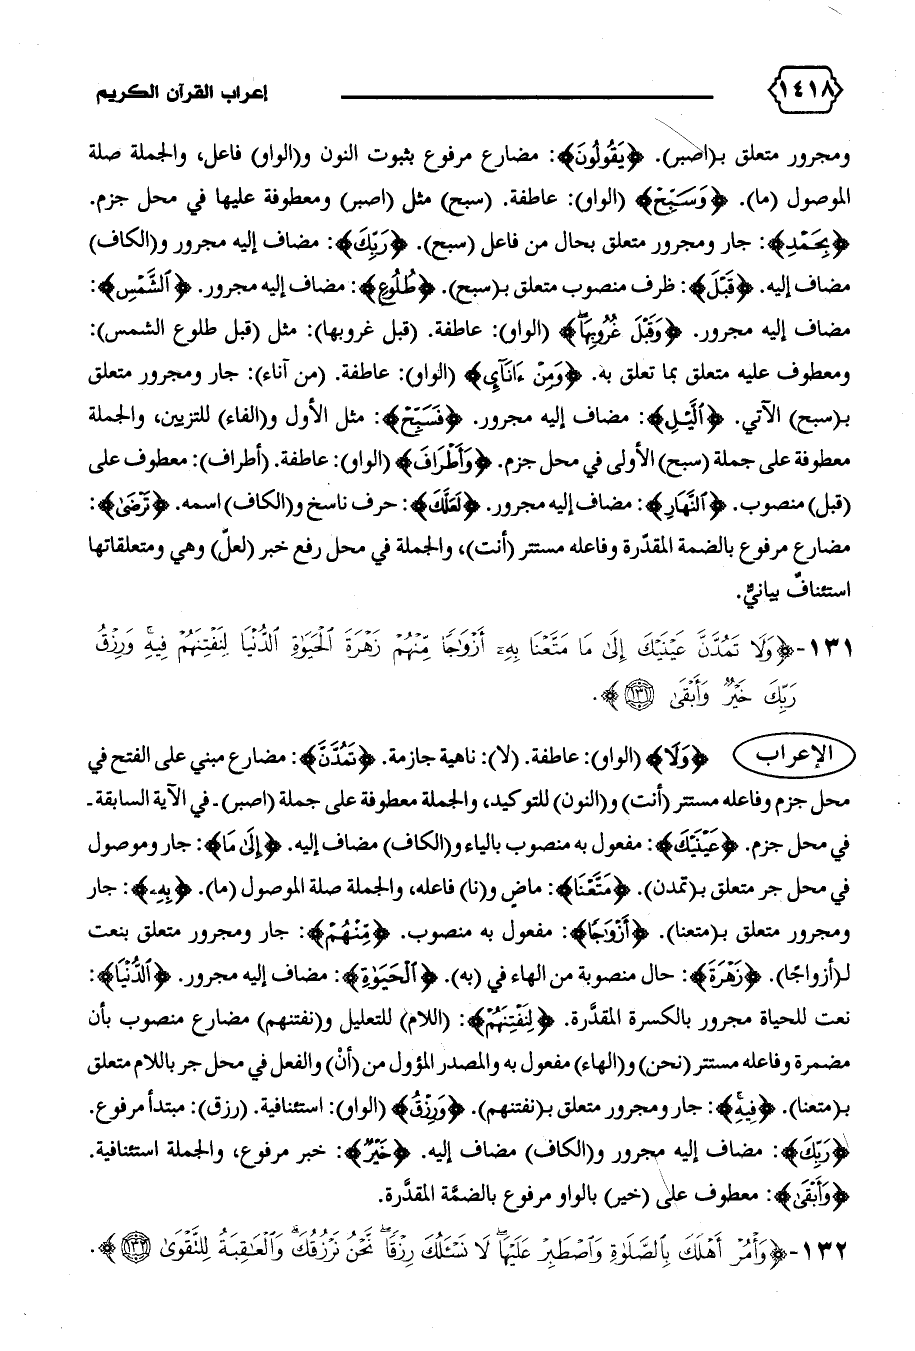 ١٤١٨ إعراب القرآن الكريم
ومجرور متعلق بـ(اصبر). ﴿يَقُولُونَ﴾: مضارع مرفوع بثبوت النون و(الواو) فاعل، والجملة صلة
الموصول (ما). ﴿وَسَبِّحْ﴾ (الواو): عاطفة. (سبح) مثل (اصبر) ومعطوفة عليها في محل جزم.
﴿بِحَمْدِ﴾: جار ومجرور متعلق بحال من فاعل (سبح). ﴿رَبِّكَ﴾: مضاف إليه مجرور و(الكاف)
مضاف إليه. ﴿قَبْلَ﴾: ظرف منصوب متعلق بـ(سبح). ﴿طُلُوعِ﴾: مضاف إليه مجرور. ﴿ٱلشَّمْسِ﴾:
مضاف إليه مجرور. ﴿وَقَبْلَ غُرُوبِهَا ۖ﴾ (الواو): عاطفة. (قبل غروبها): مثل (قبل طلوع الشمس):
ومعطوف عليه متعلق بما تعلق به. ﴿وَمِنْ ءَانَآيِٕ﴾ (الواو): عاطفة. (من آناء): جار ومجرور متعلق
بـ(سبح) الآتي. ﴿ٱلَّيْلِ﴾: مضاف إليه مجرور. ﴿فَسَبِّحْ﴾: مثل الأول و(الفاء) للتزيين، والجملة
معطوفة على جملة (سبح) الأولى في محل جزم. ﴿وَأَطْرَافَ﴾ (الواو): عاطفة. (أطراف): معطوف على
(قبل) منصوب. ﴿ٱلنَّهَارِ﴾: مضاف إليه مجرور. ﴿لَعَلَّكَ﴾: حرف ناسخ و(الكاف) اسمه. ﴿تَرْضَىٰ﴾:
مضارع مرفوع بالضمة المقدّرة وفاعله مستتر (أنت)، والجملة في محل رفع خبر (لعلّ) وهي ومتعلقاتها
استئنافٌ بيانيٌّ.
١٣١- ﴿وَلَا تَمُدَّنَّ عَيْنَيْكَ إِلَىٰ مَا مَتَّعْنَا بِهِۦٓ أَزْوَٰجًا مِّنْهُمْ زَهْرَةَ ٱلْحَيَوٰةِ ٱلدُّنْيَا لِنَفْتِنَهُمْ فِيهِ ۚ وَرِزْقُ
رَبِّكَ خَيْرٌ وَأَبْقَىٰ ﴿١٣١﴾﴾.
الإعراب ﴿وَلَا﴾ (الواو): عاطفة. (لا): ناهية جازمة. ﴿تَمُدَّنَّ﴾: مضارع مبني على الفتح في
محل جزم وفاعله مستتر (أنت) و(النون) للتوكيد، والجملة معطوفة على جملة (اصبر)ـ في الآية السابقةـ
في محل جزم. ﴿عَيْنَيْكَ﴾: مفعول به منصوب بالياء و(الكاف) مضاف إليه. ﴿إِلَىٰ مَا﴾: جار وموصول
في محل جر متعلق بـ(تمدن). ﴿مَتَّعْنَا﴾: ماضٍ و(نا) فاعله، والجملة صلة الموصول (ما). ﴿بِهِۦ﴾: جار
ومجرور متعلق بـ(متعنا). ﴿أَزْوَٰجًا﴾: مفعول به منصوب. ﴿مِّنْهُمْ﴾: جار ومجرور متعلق بنعت
لـ(أزواجًا). ﴿زَهْرَةَ﴾: حال منصوبة من الهاء في (به). ﴿ٱلْحَيَوٰةِ﴾: مضاف إليه مجرور. ﴿ٱلدُّنْيَا﴾:
نعت للحياة مجرور بالكسرة المقدَّرة. ﴿لِنَفْتِنَهُمْ﴾: (اللام) للتعليل و(نفتنهم) مضارع منصوب بأن
مضمرة وفاعله مستتر (نحن) و(الهاء) مفعول به والمصدر المؤول من (أنْ) والفعل في محل جر باللام متعلق
بـ(متعنا). ﴿فِيهِ ۚ﴾: جار ومجرور متعلق بـ(نفتنهم). ﴿وَرِزْقُ﴾ (الواو): استئنافية. (رزق): مبتدأ مرفوع.
﴿رَبِّكَ﴾: مضاف إليه مجرور و(الكاف) مضاف إليه. ﴿خَيْرٌ﴾: خبر مرفوع، والجملة استئنافية.
﴿وَأَبْقَىٰ﴾: معطوف على (خير) بالواو مرفوع بالضمَّة المقدَّرة.
١٣٢- ﴿وَأْمُرْ أَهْلَكَ بِٱلصَّلَوٰةِ وَٱصْطَبِرْ عَلَيْهَا ۖ لَا نَسْـَٔلُكَ رِزْقًا ۖ نَّحْنُ نَرْزُقُكَ ۗ وَٱلْعَـٰقِبَةُ لِلتَّقْوَىٰ ﴿١٣٢﴾﴾.